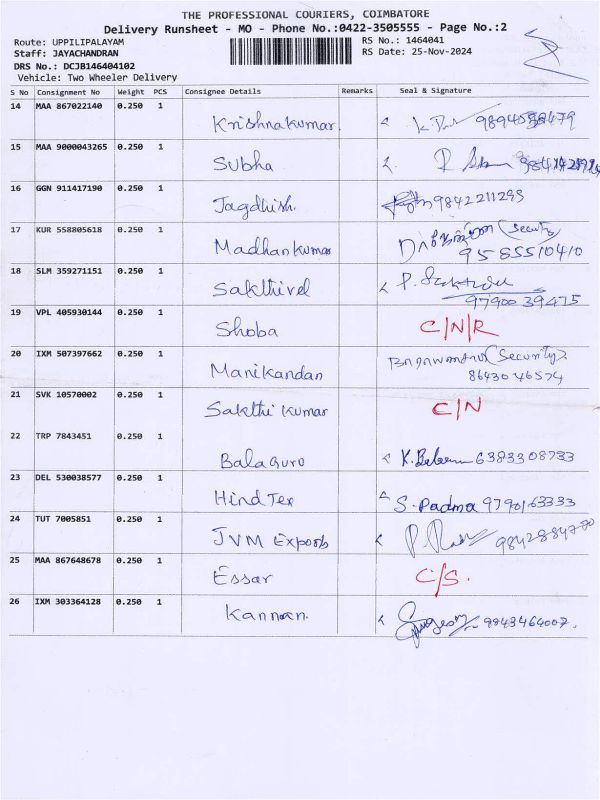 THE PROFESSIONAL COURIERS, COIMBATORE
Delivery Runsheet - MO - Phone No.:0422-3505555 - Page No.:2
Route: UPPILIPALAYAM
RS No.: 1464041
Staff: JAYACHANDRAN
RS Date: 25-Nov-2024
DRS No.: DCJB146404102
Vehicle: Two Wheeler Delivery
S No Consignment No Weight PCS Consignee Details Remarks Seal & Signature
14 MAA 867022140 0.250 1 Krishnakumar.
15 MAA 9000043265 0.250 1 Subha
16 GGN 911417190 0.250 1 Jagdhish. 9842211293
17 KUR 558805618 0.250 1 Madhankumar (Security)
9585510410
18 SLM 359271151 0.250 1 Sakthivel
9790039475
19 VPL 405930144 0.250 1 Shoba C/N/R
20 IXM 507397662 0.250 1 Manikandan (Security)
8643046574
21 SVK 10570002 0.250 1 Sakthi kumar C/N
22 TRP 7843451 0.250 1 Balaguru K. 6383308733
23 DEL 530038577 0.250 1 Hind Tex S. Padma 9790163333
24 TUT 7005851 0.250 1 JVM Exports
25 MAA 867648678 0.250 1 Essar C/S.
26 IXM 303364128 0.250 1 Kannan. 9843464007.